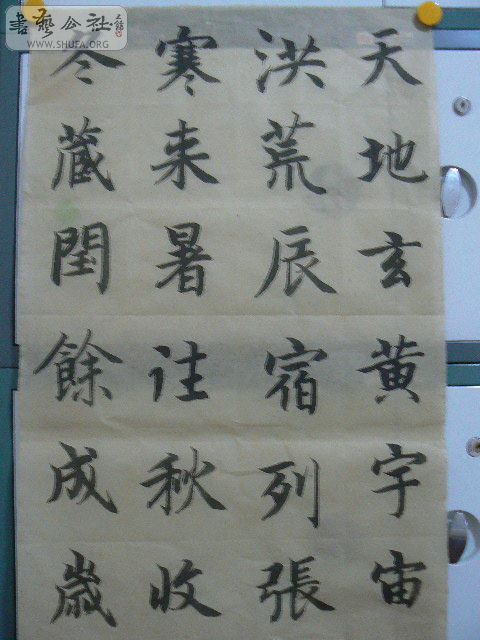 天地玄黄宇宙
洪荒辰宿列張
寒来暑往秋收
冬蔵閏餘成歲
書藝公社
WWW.SHUFA.ORG